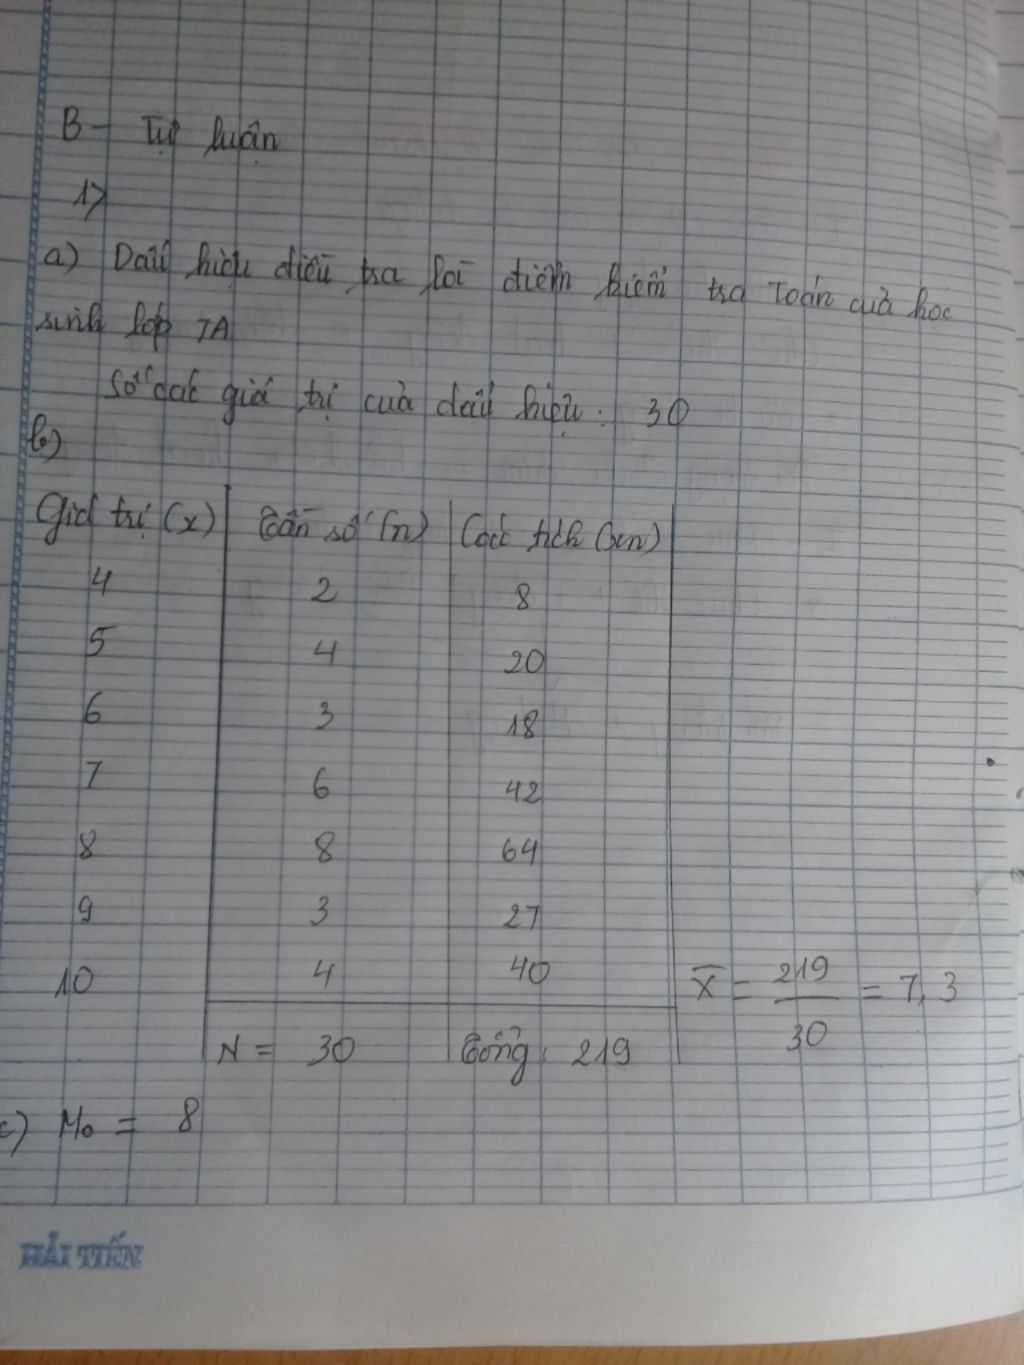 B - Tự luận
1)
a) Dấu hiệu điều tra là điểm kiểm tra Toán của học
sinh lớp 7A
Số các giá trị của dấu hiệu: 30
b)
Giá trị (x) Tần số (n) Các tích (xn)
4 2 8
5 4 20
6 3 18
7 6 42
8 8 64
9 3 27
10 4 40 X̄ = 219/30 = 7,3
N = 30 Tổng: 219
c) M₀ = 8
HẢI TIẾN